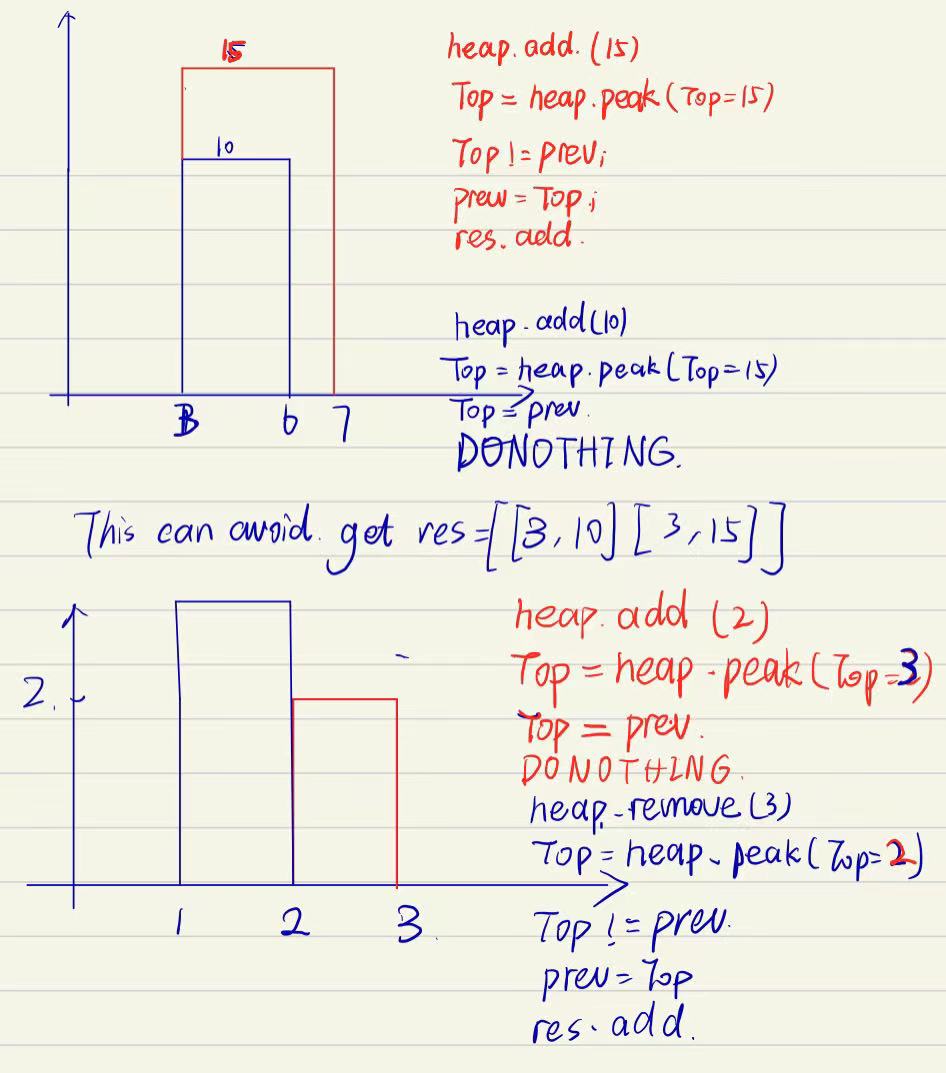 15
10
3
6
7
heap.add.(15)
Top = heap.peak(Top=15)
Top != prev;
prev = Top;
res.add.
heap.add(10)
Top = heap.peak(Top=15)
Top = prev.
DONOTHING.
This can avoid. get res=[[3,10][3,15]]
2.
1
2
3.
heap.add (2)
Top = heap.peak(Top=3)
Top = prev.
DONOTHING.
heap.remove(3)
Top = heap.peak(Top=2)
Top != prev.
prev = Top
res.add.